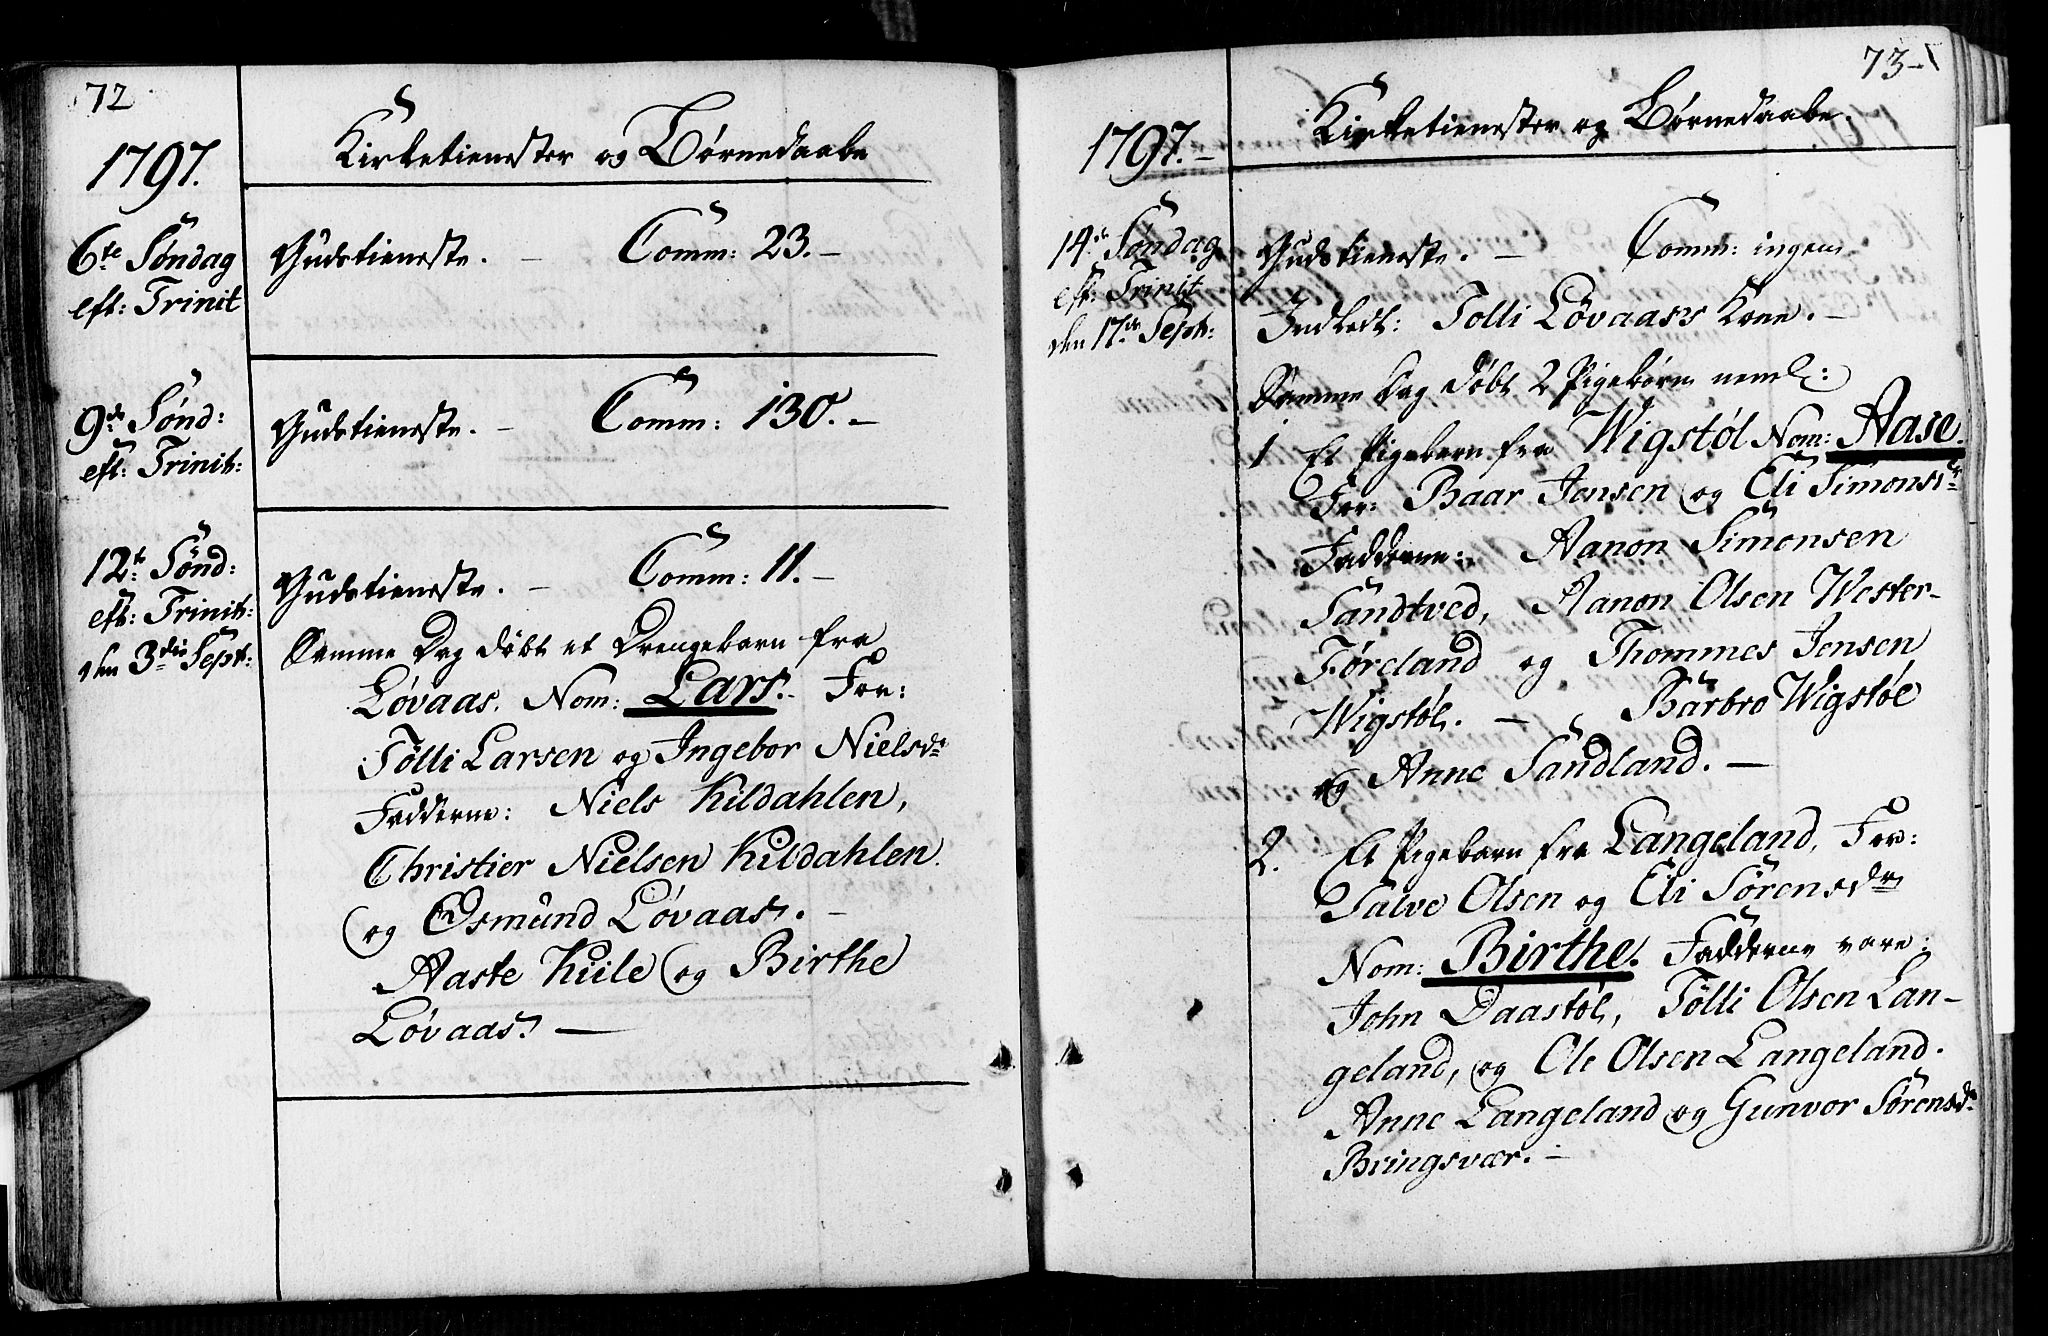 72
1797.
Kirketienester og Børnedaabe
6te Søndag
eft: Trinit
Gudstieneste. – Comm: 23. –
9de Sønd:
eft: Trinit:
Gudstieneste. – Comm: 130. –
12te Sønd:
eft: Trinit:
den 3die Sept:
Gudstieneste. – Comm: 11. –
Samme Dag døbt et Drengebarn fra
Løvaas. Nom: Lars. For:
Tølli Larsen og Ingebor Nielsdr
Fadderne: Niels Kildahlen,
Christier Nielsen Kildahlen
og Osmund Løvaas. –
Aaste Kiile og Birthe
Løvaas. —
73
1797. –
Kirketienester og Børnedaabe.
14de Søndag
eft: Trinit
den 17de Sept:
Gudstieneste. – Comm: ingen
Indledt: Tolli Løvaases Kone. –
Samme Dag døbt 2 Pigebørn neml:
1 Et Pigebarn fra Wigstøl Nom: Aase.
For: Baar Jensen og Eli Simonsdr
Fadderne: Aanon Simonsen
Sandtved, Aanon Olsen Wester-
Føreland og Thommes Jensen
Wigstøl. – Barbro Wigstøl
og Anne Sandland. —
2. Et Pigebarn fra Langeland, For:
Salve Olsen og Eli Sørensdr
Nom: Birthe. Fadderne vare:
John Daastøl, Tølli Olsen Lan-
geland, og Ole Olsen Langeland.
Anne Langeland og Gunvor Sørensdr
Bringsvær. –